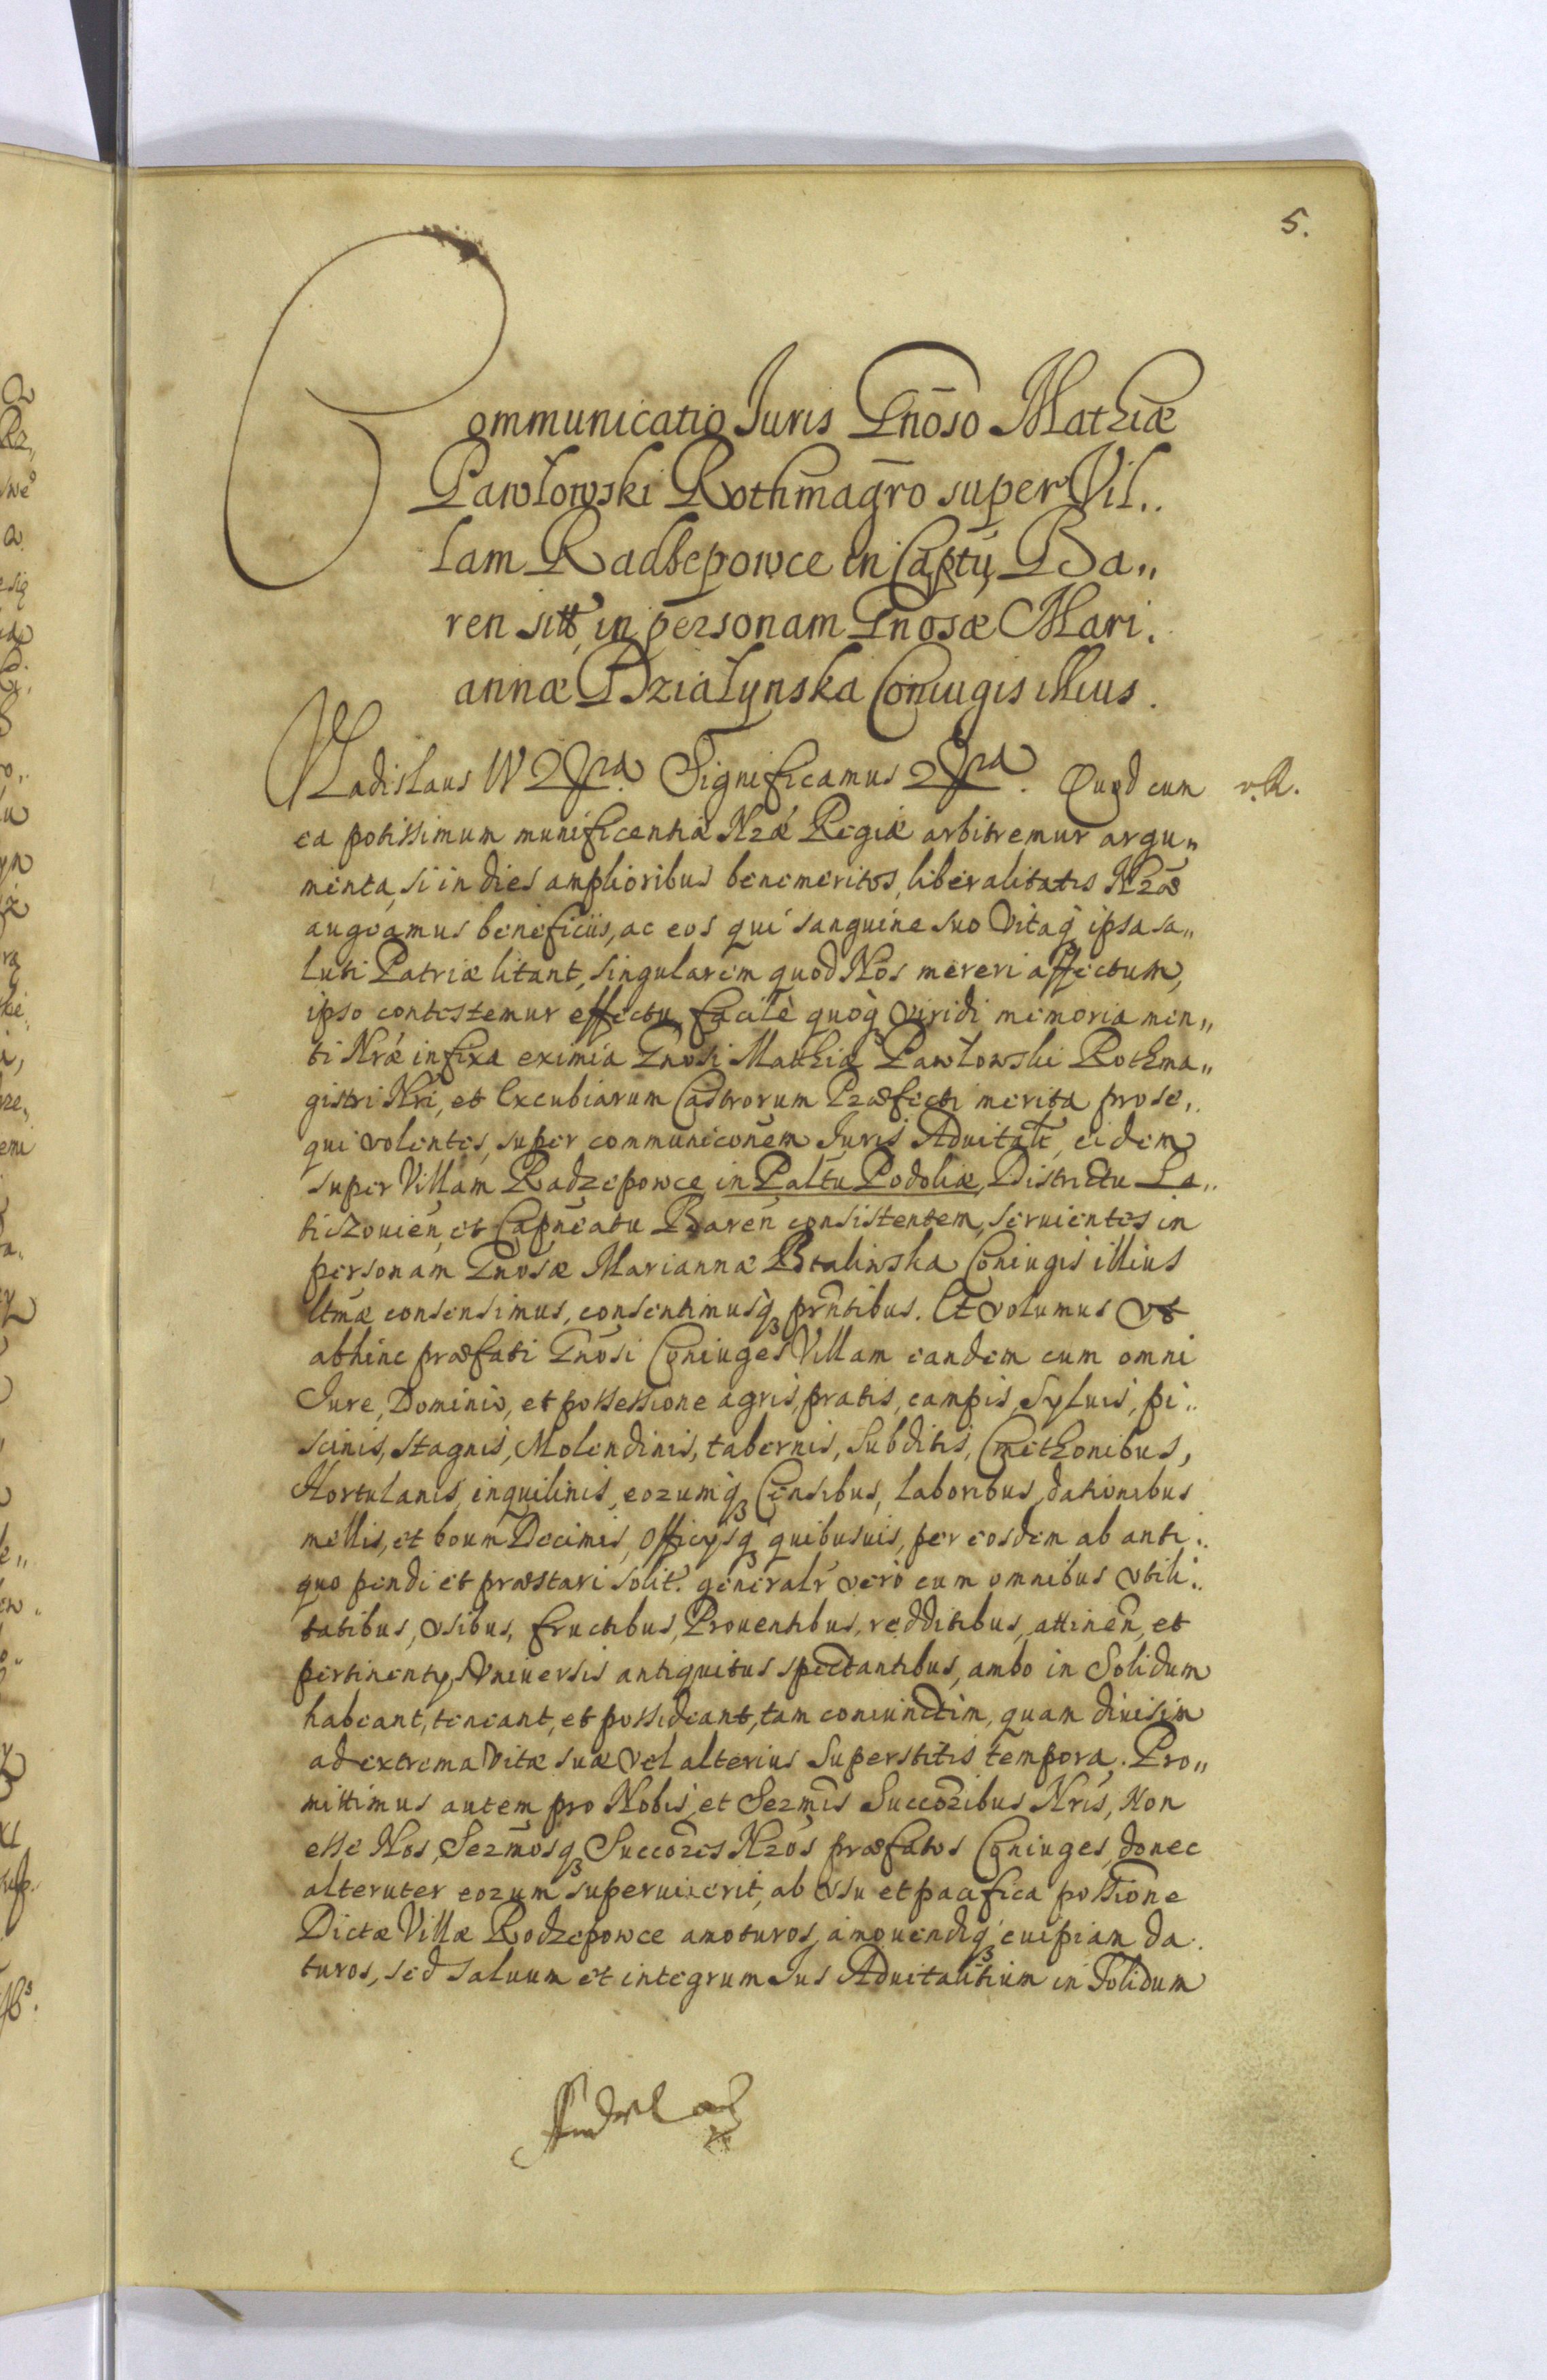 5.
Communicatio Juris Gnōso Mathiæ
Pawłowski Rothmagrō super Vil..
lam Radbepowce in Captū Ba,,
ren sitt in personam Gnosæ Mari.
annæ Działynska Coniugis illius.
Vladislaus IV Significamus Quod cum
ea potissimum munificentiæ Nræ Regiæ arbitremur argu,,
menta, si in dies amplioribus benemeritos, liberalitatis Nræ
augeamus beneficiis, ac eos qui sanguine suo Vitaq ipsa sa,,
luti Patriæ litant, singularem quod Nos mereri affectum,
ipso contestemur effectu, facilè quoq viridi memoria men,,
ti Nræ infixa eximia Gnosi Mathiæ Pawłowski Rothma,,
gistri Nri, et Excubiarum Castrorum Præfecti merita prose,,
qui volentes, super communicōnem Juris Aduitalt, eidem
super Villam Radzepowce in Paltu Podoliæ, Districtu La,,
ticzouien, et Capneatu Baren consistentem, seruientes in
personam Gnosæ Marianna Coniugis illius
ltmæ consensimus, consentimusq prntibus. Et volumus vt
abhinc præfati Gnosi Coniuges Villam eandem cum omni
Jure, Dominio, et possessione agris, pratis, campis, Syluis, pi..
scinis, stagnis, Molendinis, tabernis, Subditis, Cmethonibus,
Hortulanis, inquilinis, eorumq Censibus, laboribus, dationibus
mellis, et boum Decimis, Officysq quibusuis, per eosdem ab anti..
quo pendi et præstari solit. generalr vero cum omnibus vtili..
tatibus, vsibus, fructibus, Prouentibus, redditibus, attinen, et
pertinentys vniuersis antiquitus spectantibus, ambo in Solidum
habeant, teneant, et possideant, tam coniunctim, quam diuisim
ad extrema Vitæ suæ vel alterius Superstitis tempora. Pro,,
mittimus autem pro Nobis, et Sermis Succoribus Nris, Non
esse Nos, Sermosq Succores Nros præfatos Coniuges, donec
alteruter eorum superuixerit, ab vsu et pacifica possione
Dictæ Villæ Rodzepowce amoturos, amouendiq cuipiam da.
turos, sed saluum et integrum Jus Aduitalitium in Solidum